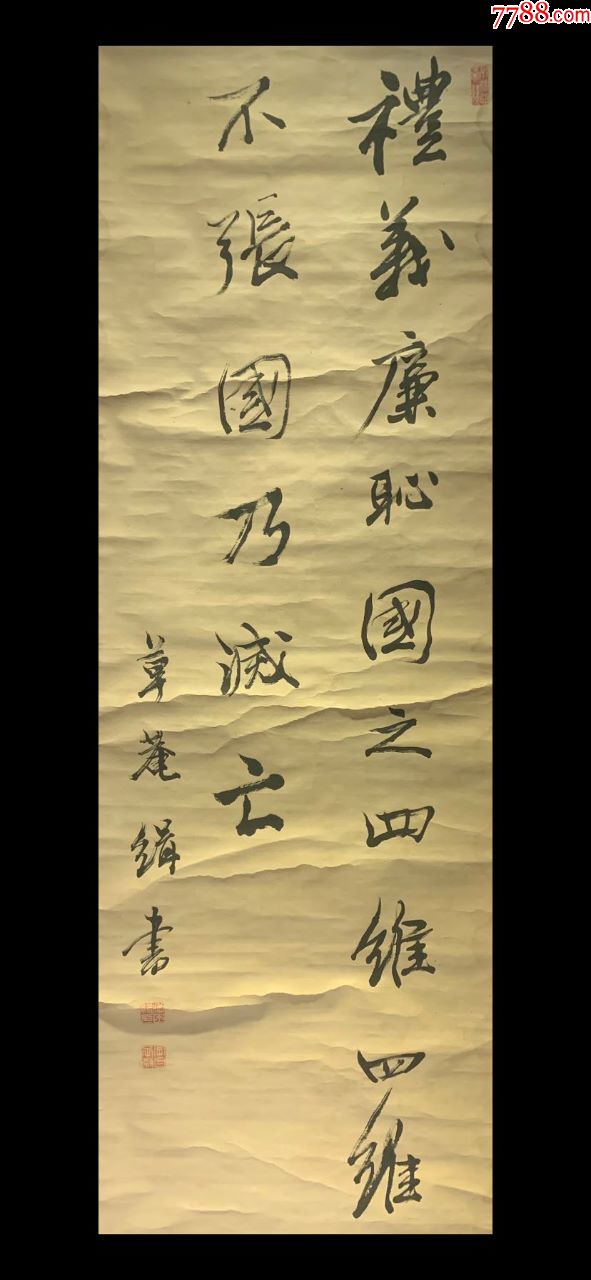 7788.com
禮義廉恥國之四維四維
不張國乃滅亡
草菴緝書